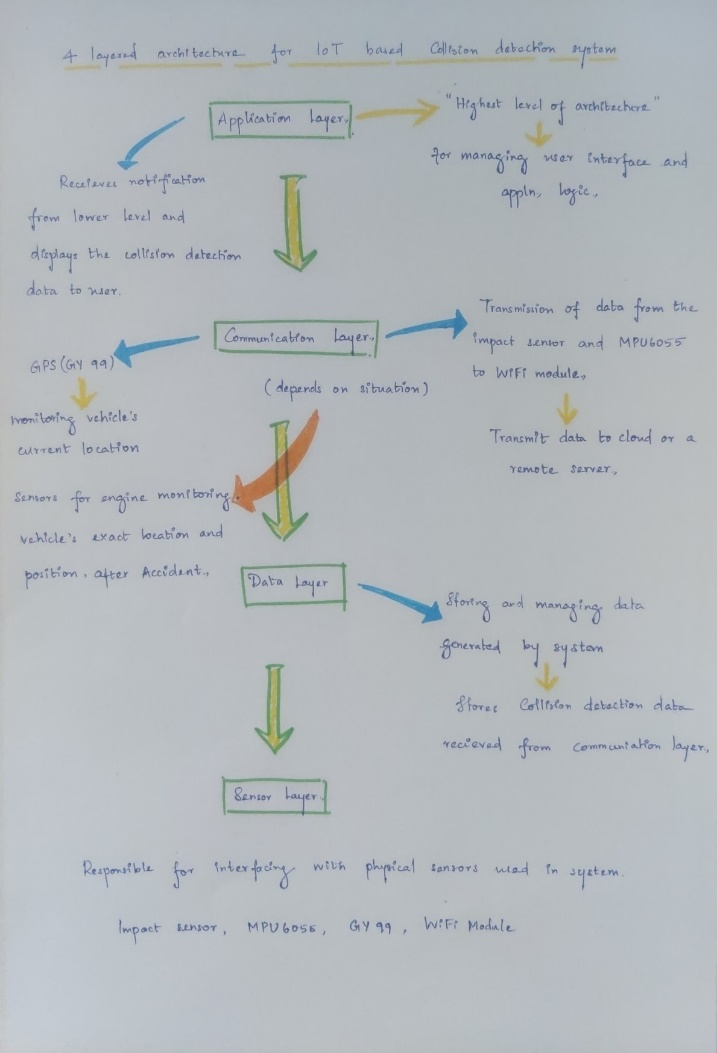 4 layered architecture for IoT based Collision detection system
Application Layer.
"Highest level of architecture"
for managing user interface and
appln, logic.,
Recieves notification
from lower level and
displays the collision detection
data to user.
Communication Layer.
(depends on situation)
Transmission of data from the
impact sensor and MPU6055
to WiFi module.,
Transmit data to cloud or a
remote server.,
GPS (GY 99)
monitoring vehicle's
current location
Sensors for engine monitoring.
vehicle's exact location and
position, after Accident.,
Data Layer
Storing and managing data
generated by system
Stores Collision detection data
recieved from communiation layer.,
Sensor Layer.
Responsible for interfacing with physical sensors used in system.
Impact sensor, MPU6055, GY 99, WiFi Module